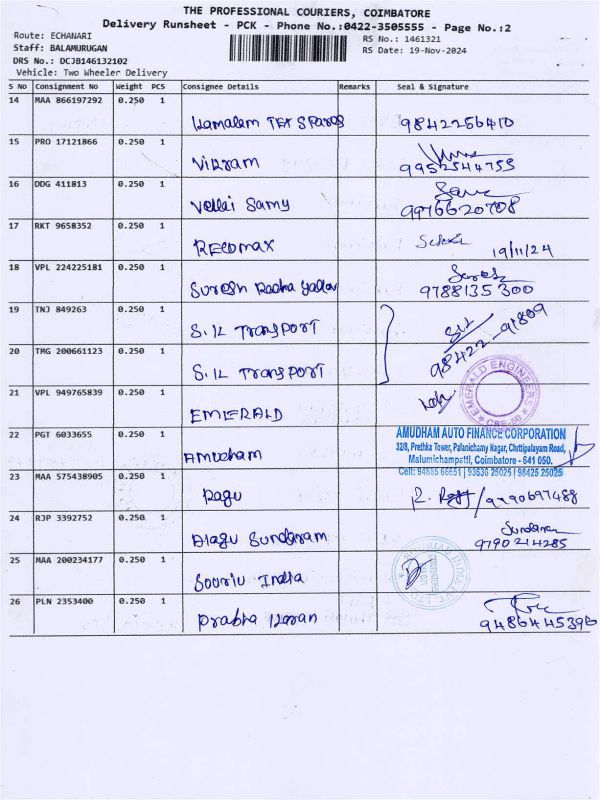 THE PROFESSIONAL COURIERS, COIMBATORE
Delivery Runsheet - PCK - Phone No.:0422-3505555 - Page No.:2
Route: ECHANARI
RS No.: 1461321
Staff: BALAMURUGAN
RS Date: 19-Nov-2024
DRS No.: DCJB146132102
Vehicle: Two Wheeler Delivery
S No Consignment No Weight PCS Consignee Details Remarks Seal & Signature
14 MAA 866197292 0.250 1
Kamalam Tex Spares 9842256410
15 PRO 17121866 0.250 1
Vikram 9952544755
16 DDG 411813 0.250 1
Vellai Samy 9976620708
17 RKT 9658352 0.250 1
Recomax 19/11/24
18 VPL 224225181 0.250 1
Suresh Radha Yadav Suresh 9788135300
19 TNJ 849263 0.250 1
S.K Transport
98422-91809
20 TMG 200661123 0.250 1
S.K Transport
21 VPL 949765839 0.250 1
EMIERALD
EMERALD ENGINEERS
22 PGT 6033655 0.250 1
Amudham
AMUDHAM AUTO FINANCE CORPORATION
32/8, Prethka Tower, Palanichamy Nagar, Chettipalayam Road,
Malumichampatti, Coimbatore - 641 050.
Cell: 94885 66651 | 93636 25025 | 98425 25025
23 MAA 575438905 0.250 1
Ragu 9790697488
24 RJP 3392752 0.250 1
Alagu Sundaram Sundaram
9790214285
25 MAA 200234177 0.250 1
Sooriu India
26 PLN 2353400 0.250 1
Prabha Karan 9486445396